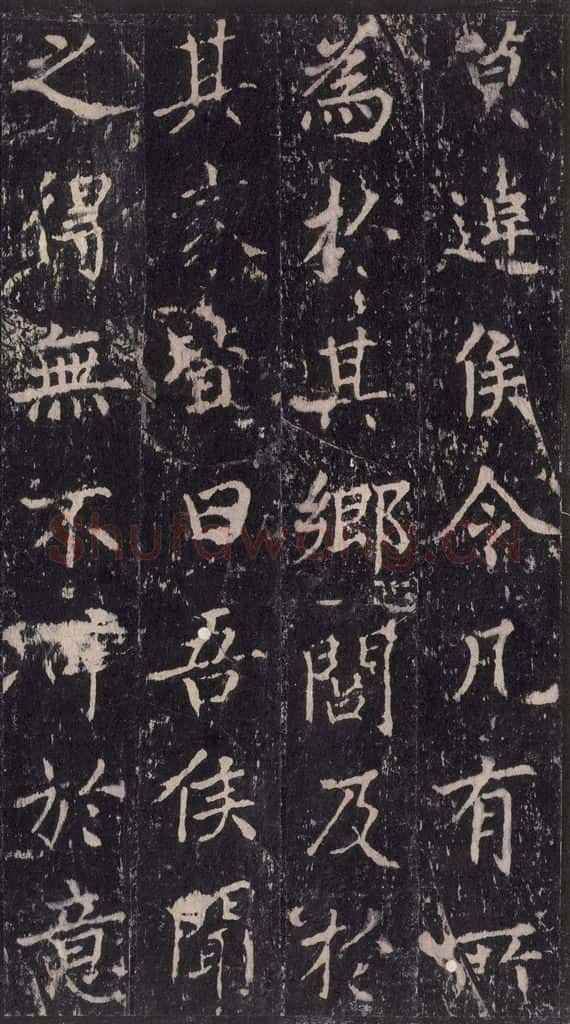 莫違侯令凡有所
為於其鄉閭及於
其家皆曰吾侯聞
之得無不可於意
Shufawang.CN